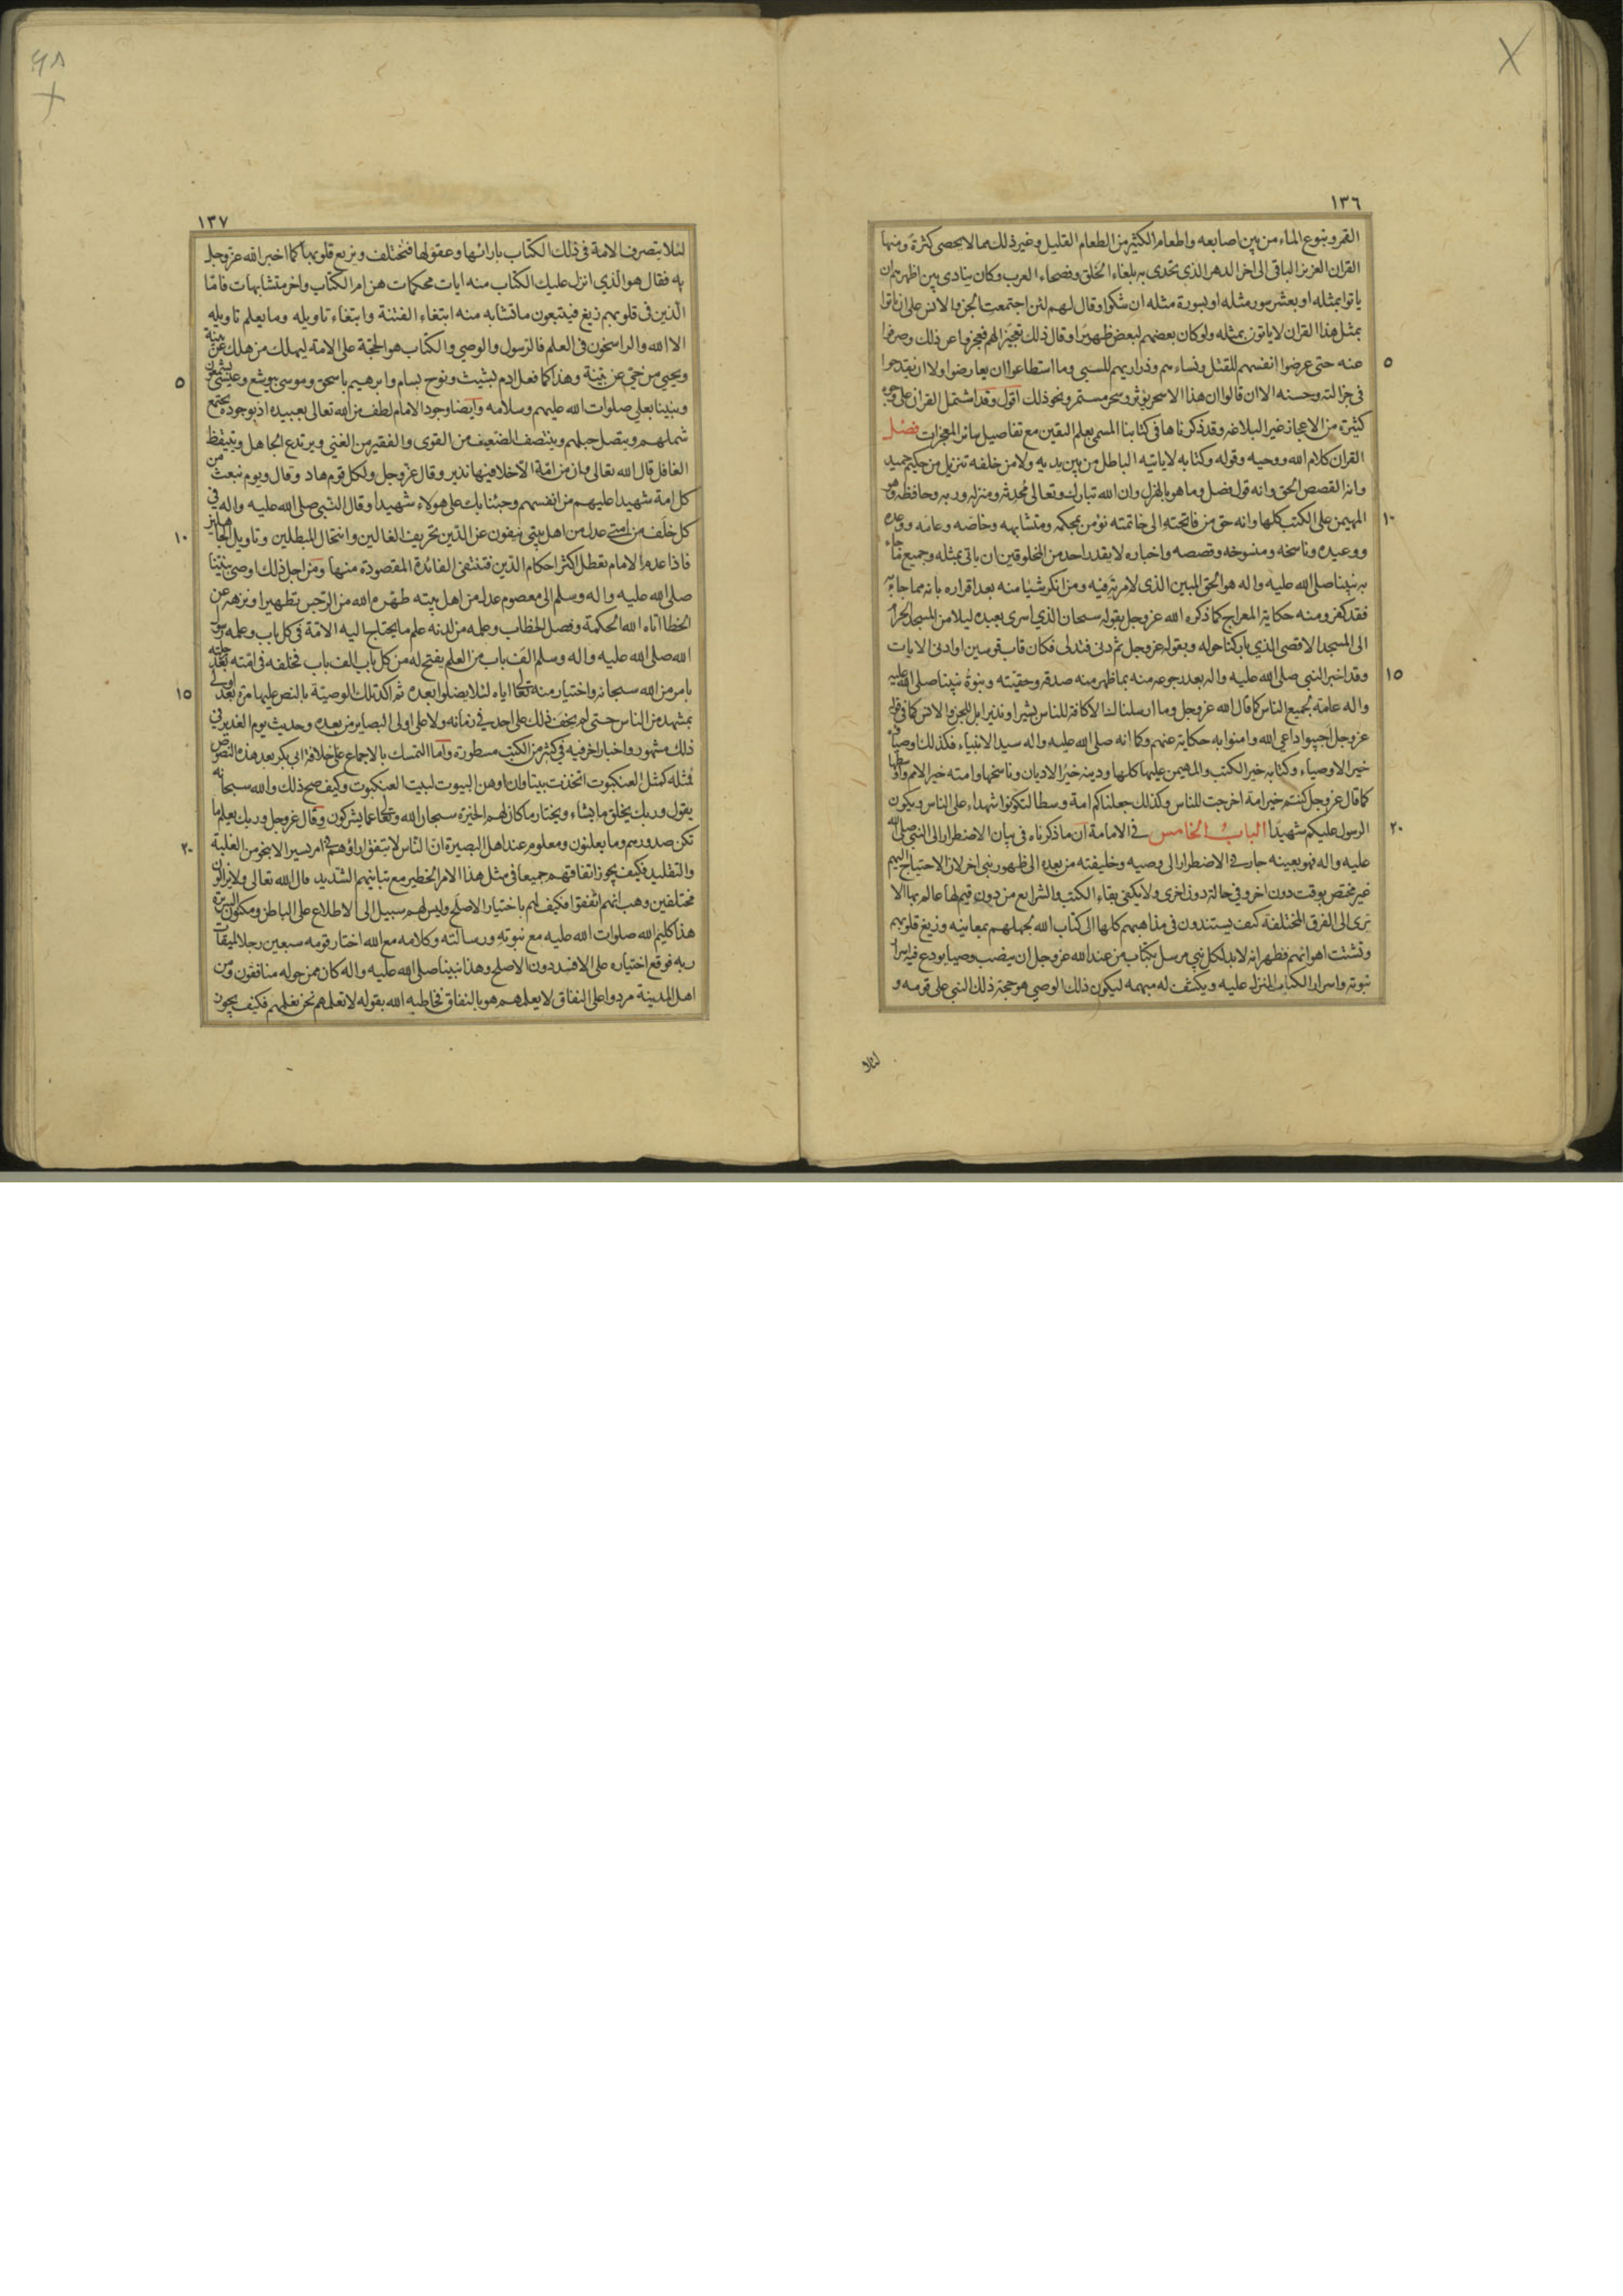 ١٣٦
القمر ونبوع الماء من بين اصابعه واطعام الكثير من الطعام القليل وغير ذلك مما لا يحصى كثرة ومنها
القران العزيز الباقى الى اخر الدهر الذى تحدى به بلغاء الخلق وفصحاء العرب وكان ينادى بين اظهرهم ان
ياتوا بمثله او بعشر سور مثله او بسورة مثله ان شكوا وقال لهم لئن اجتمعت الجن والانس على ان ياتوا
بمثل هذا القران لا ياتون بمثله ولو كان بعضهم لبعض ظهيرا وقال ذلك تعجيزا لهم فعجزوا عن ذلك وصرفوا
٥
عنه حتى عرضوا انفسهم للقتل ونساءهم وذراريهم للسبى وما استطاعوا ان يعارضوا ولا ان يقدحوا
فى جزالته وحسنه الا ان قالوا ان هذا الا سحر يؤثر وسحر مستمر ونحو ذلك اقول وقد اشتمل القران على وجوه
كثيرة من الاعجاز غير البلاغه وقد ذكرناها فى كتابنا المسمى بعلم اليقين مع تفاصيل سائر المعجزات فصل
القران كلام الله ووحيه وقوله وكتابه لا ياتيه الباطل من بين يديه ولا من خلفه تنزيل من حكيم حميد
وانه القصص الحق وانه قول فصل وما هو بالهزل وان الله تبارك وتعالى محدثه ومنزله وربه وحافظه وهو
١٠
المهيمن على الكتب كلها وانه حق من فاتحته الى خاتمته نؤمن بمحكمه ومتشابهه وخاصه وعامه ووعده
ووعيده وناسخه ومنسوخه وقصصه واخباره لا يقدر احد من المخلوقين ان ياتى بمثله وجميع ما جاء
به نبينا صلى الله عليه واله هو الحق المبين الذى لا مرية فيه ومن انكر شيئا منه بعد اقراره بانه مما جاء به
فقد كفر ومنه حكاية المعراج كما ذكره الله عز وجل بقوله سبحان الذي اسرى بعبده ليلا من المسجد الحرام
الى المسجد الاقصى الذي باركنا حوله وبقوله عز وجل ثم دنى فتدلى فكان قاب قوسين او ادنى الايات
١٥
وقد اخبر النبى صلى الله عليه واله بعد رجوعه منه بما ظهر منه صدقه وحقيته ونبوة نبينا صلى الله عليه
واله عامة لجميع الناس كما قال الله عز وجل وما ارسلناك الا كافة للناس بشيرا ونذيرا بل للجن والانس كما فى قوله
عز وجل اجيبوا داعى الله وامنوا به حكاية عنهم وكما انه صلى الله عليه واله سيد الانبياء فكذلك اوصياؤه
خير الاوصياء وكتابه خير الكتب والمهيمن عليها كلها ودينه خير الاديان وناسخها وامته خير الامم واوسطها
كما قال عز وجل كنتم خير امة اخرجت للناس وكذلك جعلناكم امة وسطا لتكونوا شهداء على الناس ويكون
٢٠
الرسول عليكم شهيدا الباب الخامس فى الامامة ان ما ذكرناه فى بيان الاضطرار الى النبى صلى الله
عليه واله فهو بعينه جار فى الاضطرار الى وصيه وخليفته من بعده الى ظهور نبى اخر لان الاحتياج اليهم
غير مختص بوقت دون اخر وفى حالة دون اخرى ولا يكفى بقاء الكتب والشرايع من دون قيم لها عالم بها الا
ترى الى الفرق المختلفة كيف يستندون فى مذاهبهم كلها الى كتاب الله لجهلهم بمعانيه وزيغ قلوبهم
وتشتت اهوائهم فظهر انه لابد لكل نبى مرسل بكتاب من عند الله عز وجل ان ينصب وصيا يودع فيه اسرار
نبوته واسرار الكتاب المنزل عليه ويكشف له مبهمه ليكون ذلك الوصى هو حجة ذلك النبى على قومه و
لئلا
١٣٧
لئلا يتصرف الامة فى ذلك الكتاب بارائها وعقولها فتختلف ويزيغ قلوبها كما اخبر الله عز وجل
به فقال هو الذي انزل عليك الكتاب منه ايات محكمات هن ام الكتاب واخر متشابهات فاما
الذين فى قلوبهم زيغ فيتبعون ما تشابه منه ابتغاء الفتنة وابتغاء تاويله وما يعلم تاويله
الا الله والراسخون فى العلم فالرسول والوصى والكتاب هو الحجة على الامة ليهلك من هلك عن بينة
٥
ويحيى من حى عن بينة وهذا كما فعل ادم بشيث ونوح بسام وابرهيم باسحق وموسى بيوشع وعيسى بشمعون
ونبينا بعلي صلوات الله عليهم وسلامه وايضا وجود الامام لطف من الله تعالى بعبيده اذ بوجوده يجتمع
شملهم ويتصل حبلهم وينتصف الضعيف من القوى والفقير من الغنى ويرتدع الجاهل ويتيقظ
الغافل قال الله تعالى وان من امة الا خلا فيها نذير وقال عز وجل ولكل قوم هاد وقال ويوم نبعث من
كل امة شهيدا عليهم من انفسهم وجئنا بك على هؤلاء شهيدا وقال النبى صلى الله عليه واله فى
١٠
كل خلف من امتى عدل من اهل بيتى ينفون عن الدين تحريف الغالين وانتحال المبطلين وتاويل الجاهلين
فاذا عدم الامام تعطل اكثر احكام الدين فتنتفى الفائدة المقصودة منها ومن اجل ذلك اوصى نبينا
صلى الله عليه واله وسلم الى معصوم عدل من اهل بيته طهره الله من الرجس تطهيرا ونزهه عن
الخطا اتاه الله الحكمة وفصل الخطاب وعلمه من لدنه علم ما يحتاج اليه الامة فى كل باب وعلمه رسول
الله صلى الله عليه واله وسلم الف باب من العلم يفتح له من كل باب الف باب فخلفه فى امته بعد رحلته
١٥
بامر من الله سبحانه واختيار منه تعالى اياه لئلا يضلوا بعده ثم اكد تلك الوصية بالنص عليها مرة بعد اولى
بمشهد من الناس حتى لم يخف ذلك على احد فى زمانه ولا على اولى البصاير من بعده وحديث يوم الغدير فى
ذلك مشهور واخبار اخر فيه فى كثير من الكتب مسطورة واما التمسك بالاجماع على خلافة ابى بكر بعد هذه النصوص
فمثله كمثل العنكبوت اتخذت بيتا وان اوهن البيوت لبيت العنكبوت وكيف صح ذلك والله سبحانه
يقول وربك يخلق ما يشاء ويختار ما كان لهم الخيرة سبحان الله وتعالى عما يشركون وقال عز وجل وربك يعلم ما
٢٠
تكن صدورهم وما يعلنون ومعلوم عند اهل البصيرة ان الناس لا يتفق اراؤهم فى امر يسير الا بنحو من الغلبة
والتقليد فكيف يجوز اتفاقهم جميعا فى مثل هذا الامر الخطير مع تباينهم الشديد قال الله تعالى ولا يزالون
مختلفين وهب انهم اتفقوا فكيف لهم باختيار الاصلح وليس لهم سبيل الى الاطلاع على الباطن ومكنون السريرة
هذا كليم الله صلوات الله عليه مع نبوته ورسالته وكلامه مع الله اختار قومه سبعين رجلا لميقات
ربه فوقع اختياره على الافسد دون الاصلح وهذا نبينا صلى الله عليه واله كان ممن حوله منافقون ومن
اهل المدينة مردوا على النفاق لا يعلمهم هو بالنفاق فخاطبه الله بقوله لا تعلمهم نحن نعلمهم فكيف يجوز